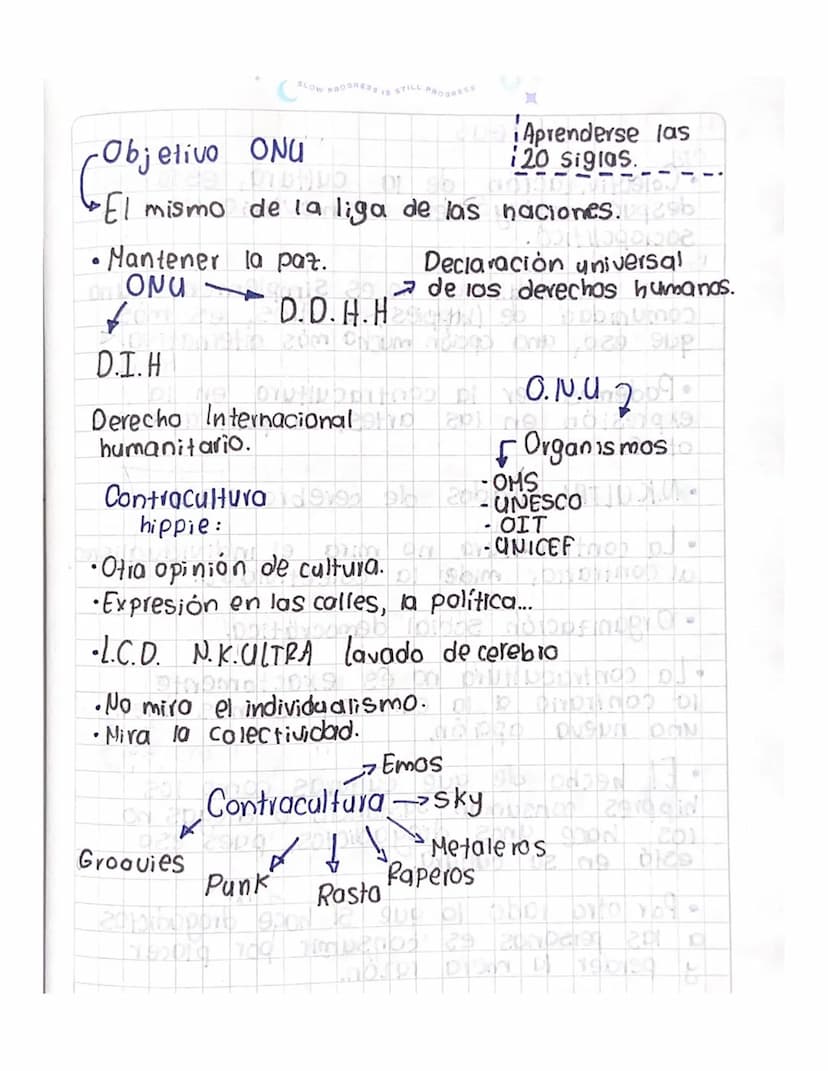 SLOW PROGRESS IS STILL PROGRESS
Aprenderse las
20 siglas.
Objetivo ONU
El mismo de la liga de las naciones.
• Mantener la paz.
ONU
D.D.H.H
Declaración universal
de los derechos humanos.
D.I.H
Derecho Internacional
humanitario.
O.N.U
Organismos
- OMS
- UNESCO
- OIT
- UNICEF
Contracultura
hippie:
• Otra opinión de cultura.
• Expresión en las calles, la política...
• L.C.D. N.K.ULTRA lavado de cerebro
• No mira el individualismo.
• Mira la colectividad.
Contracultura
Emos
sky
Metaleros
Raperos
Rasta
Punk
Groovies